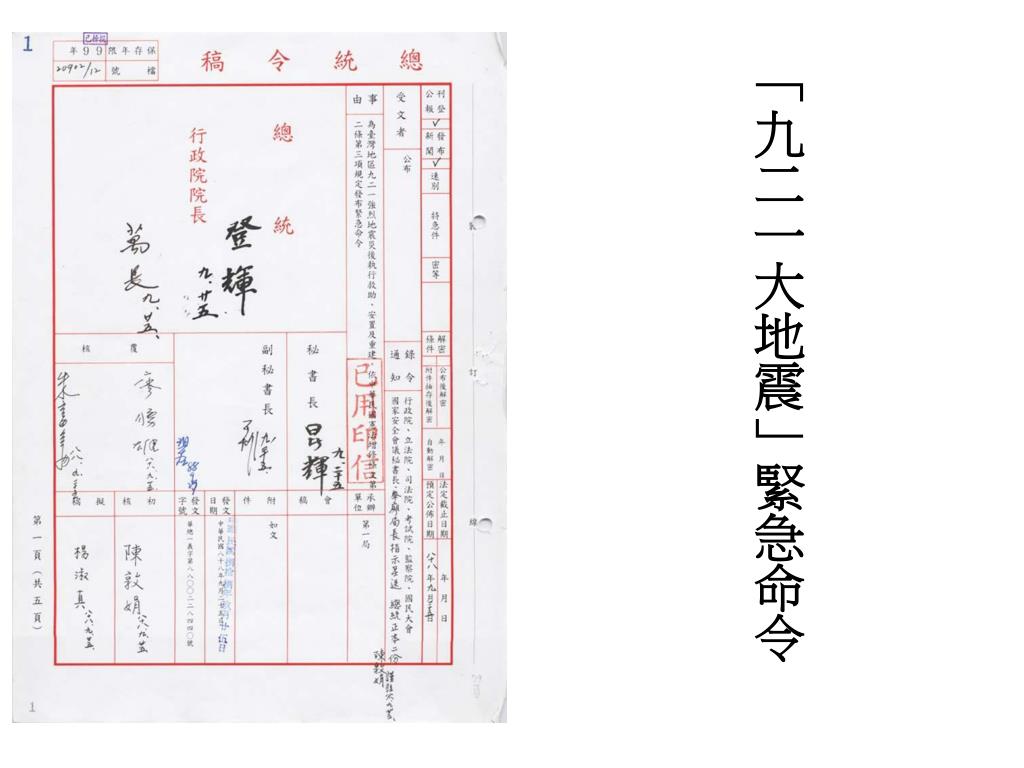 「九二一大地震」緊急命令
1
已檢校
保存年限 99年
檔號 20902/12
總統令稿
刊登公報 ✓
發布新聞 ✓
速別
特急件
密等
解密條件
公布後解密
附件抽存後解密
年 月 日自動解密
法定截止日期
預定公佈日期
年 月 日
八八年九月
受文者
公布
錄令通知
行政院、立法院、司法院、考試院、監察院、國民大會
國家安全會議秘書長、參軍局長指示呈送 總統正本二份
陳敦娟
事由
為臺灣地區九二一強烈地震災後執行救助、安置及重建,依中華民國憲法增修條文第
二條第三項規定發布緊急命令
已用印信
總統
登輝
九.廿五.
行政院院長
萬長
九.廿五.
秘書長
昆輝
九.二十五
副秘書長
九.廿五.
覆核
廖勝雄
八八.九.廿五
承辦單位
第一局
會稿
附件
如文
發文日期
中華民國八十八年九月二十五日
發文字號
華總一義字第八八○○二二八四四○號
初核
陳敦娟
八八.九.廿五
擬稿
楊淑真
八八.九.廿五
裝
訂
線
第一頁(共五頁)
1